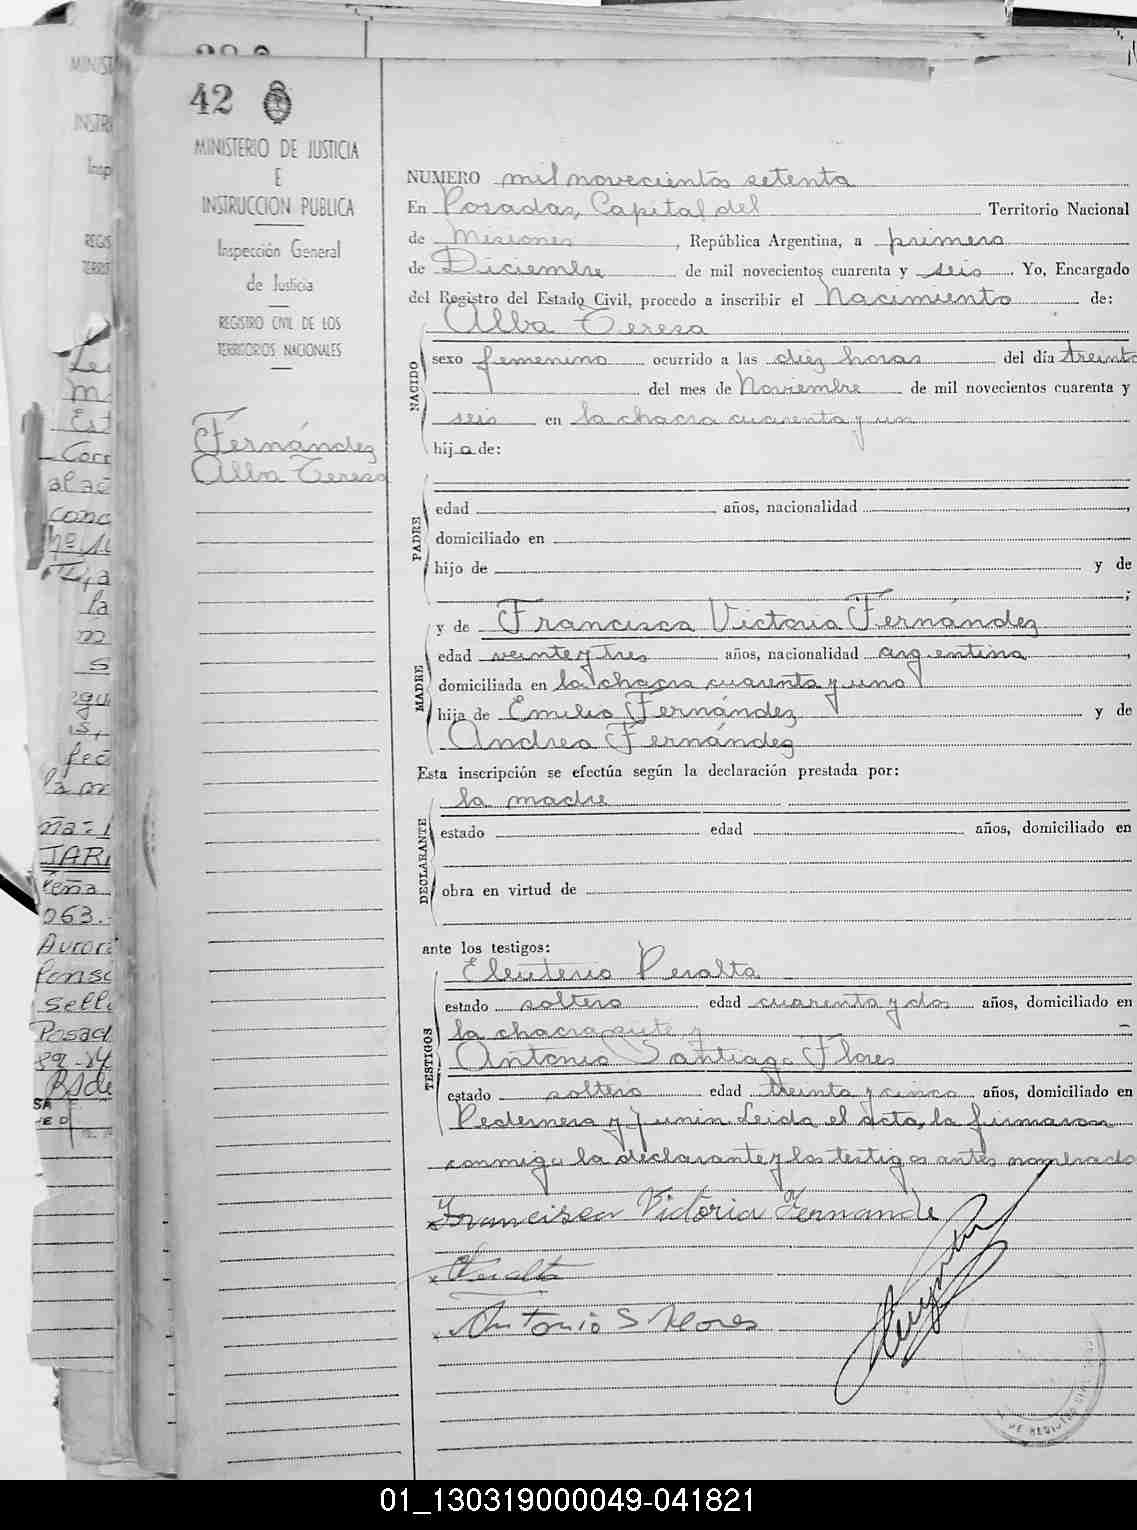 42
MINISTERIO DE JUSTICIA
E
INSTRUCCION PUBLICA
Inspección General
de Justicia
REGISTRO CIVIL DE LOS
TERRITORIOS NACIONALES
Fernández
Alba Teresa
NUMERO mil novecientos setenta
En Posadas, Capital del Territorio Nacional
de Misiones, República Argentina, a primero
de Diciembre de mil novecientos cuarenta y seis Yo, Encargado
del Registro del Estado Civil, procedo a inscribir el Nacimiento de:
Alba Teresa
NACIDO
sexo femenino ocurrido a las diez horas del día treinta
del mes de Noviembre de mil novecientos cuarenta y
seis en la chacra cuarenta y un
hija de:
PADRE
edad años, nacionalidad ,
domiciliado en
hijo de y de
;
MADRE
y de Francisca Victoria Fernández
edad veinte y tres años, nacionalidad argentina,
domiciliada en la chacra cuarenta y uno
hija de Emilio Fernández y de
Andrea Fernández
Esta inscripción se efectúa según la declaración prestada por:
DECLARANTE
la madre
estado edad años, domiciliado en
obra en virtud de
ante los testigos:
TESTIGOS
Eleuterio Peralta
estado soltero edad cuarenta y dos años, domiciliado en
la chacra siete y
Antonio Santiago Flores
estado soltero edad treinta y cinco años, domiciliado en
Pedernera y Junin Leida el acta, la firmaron
conmigo la declarante y los testigos antes nombrado
Francisca Victoria Fernande
Peralta
Antonio S Flores
DE REGISTRO CIVIL
01_130319000049-041821